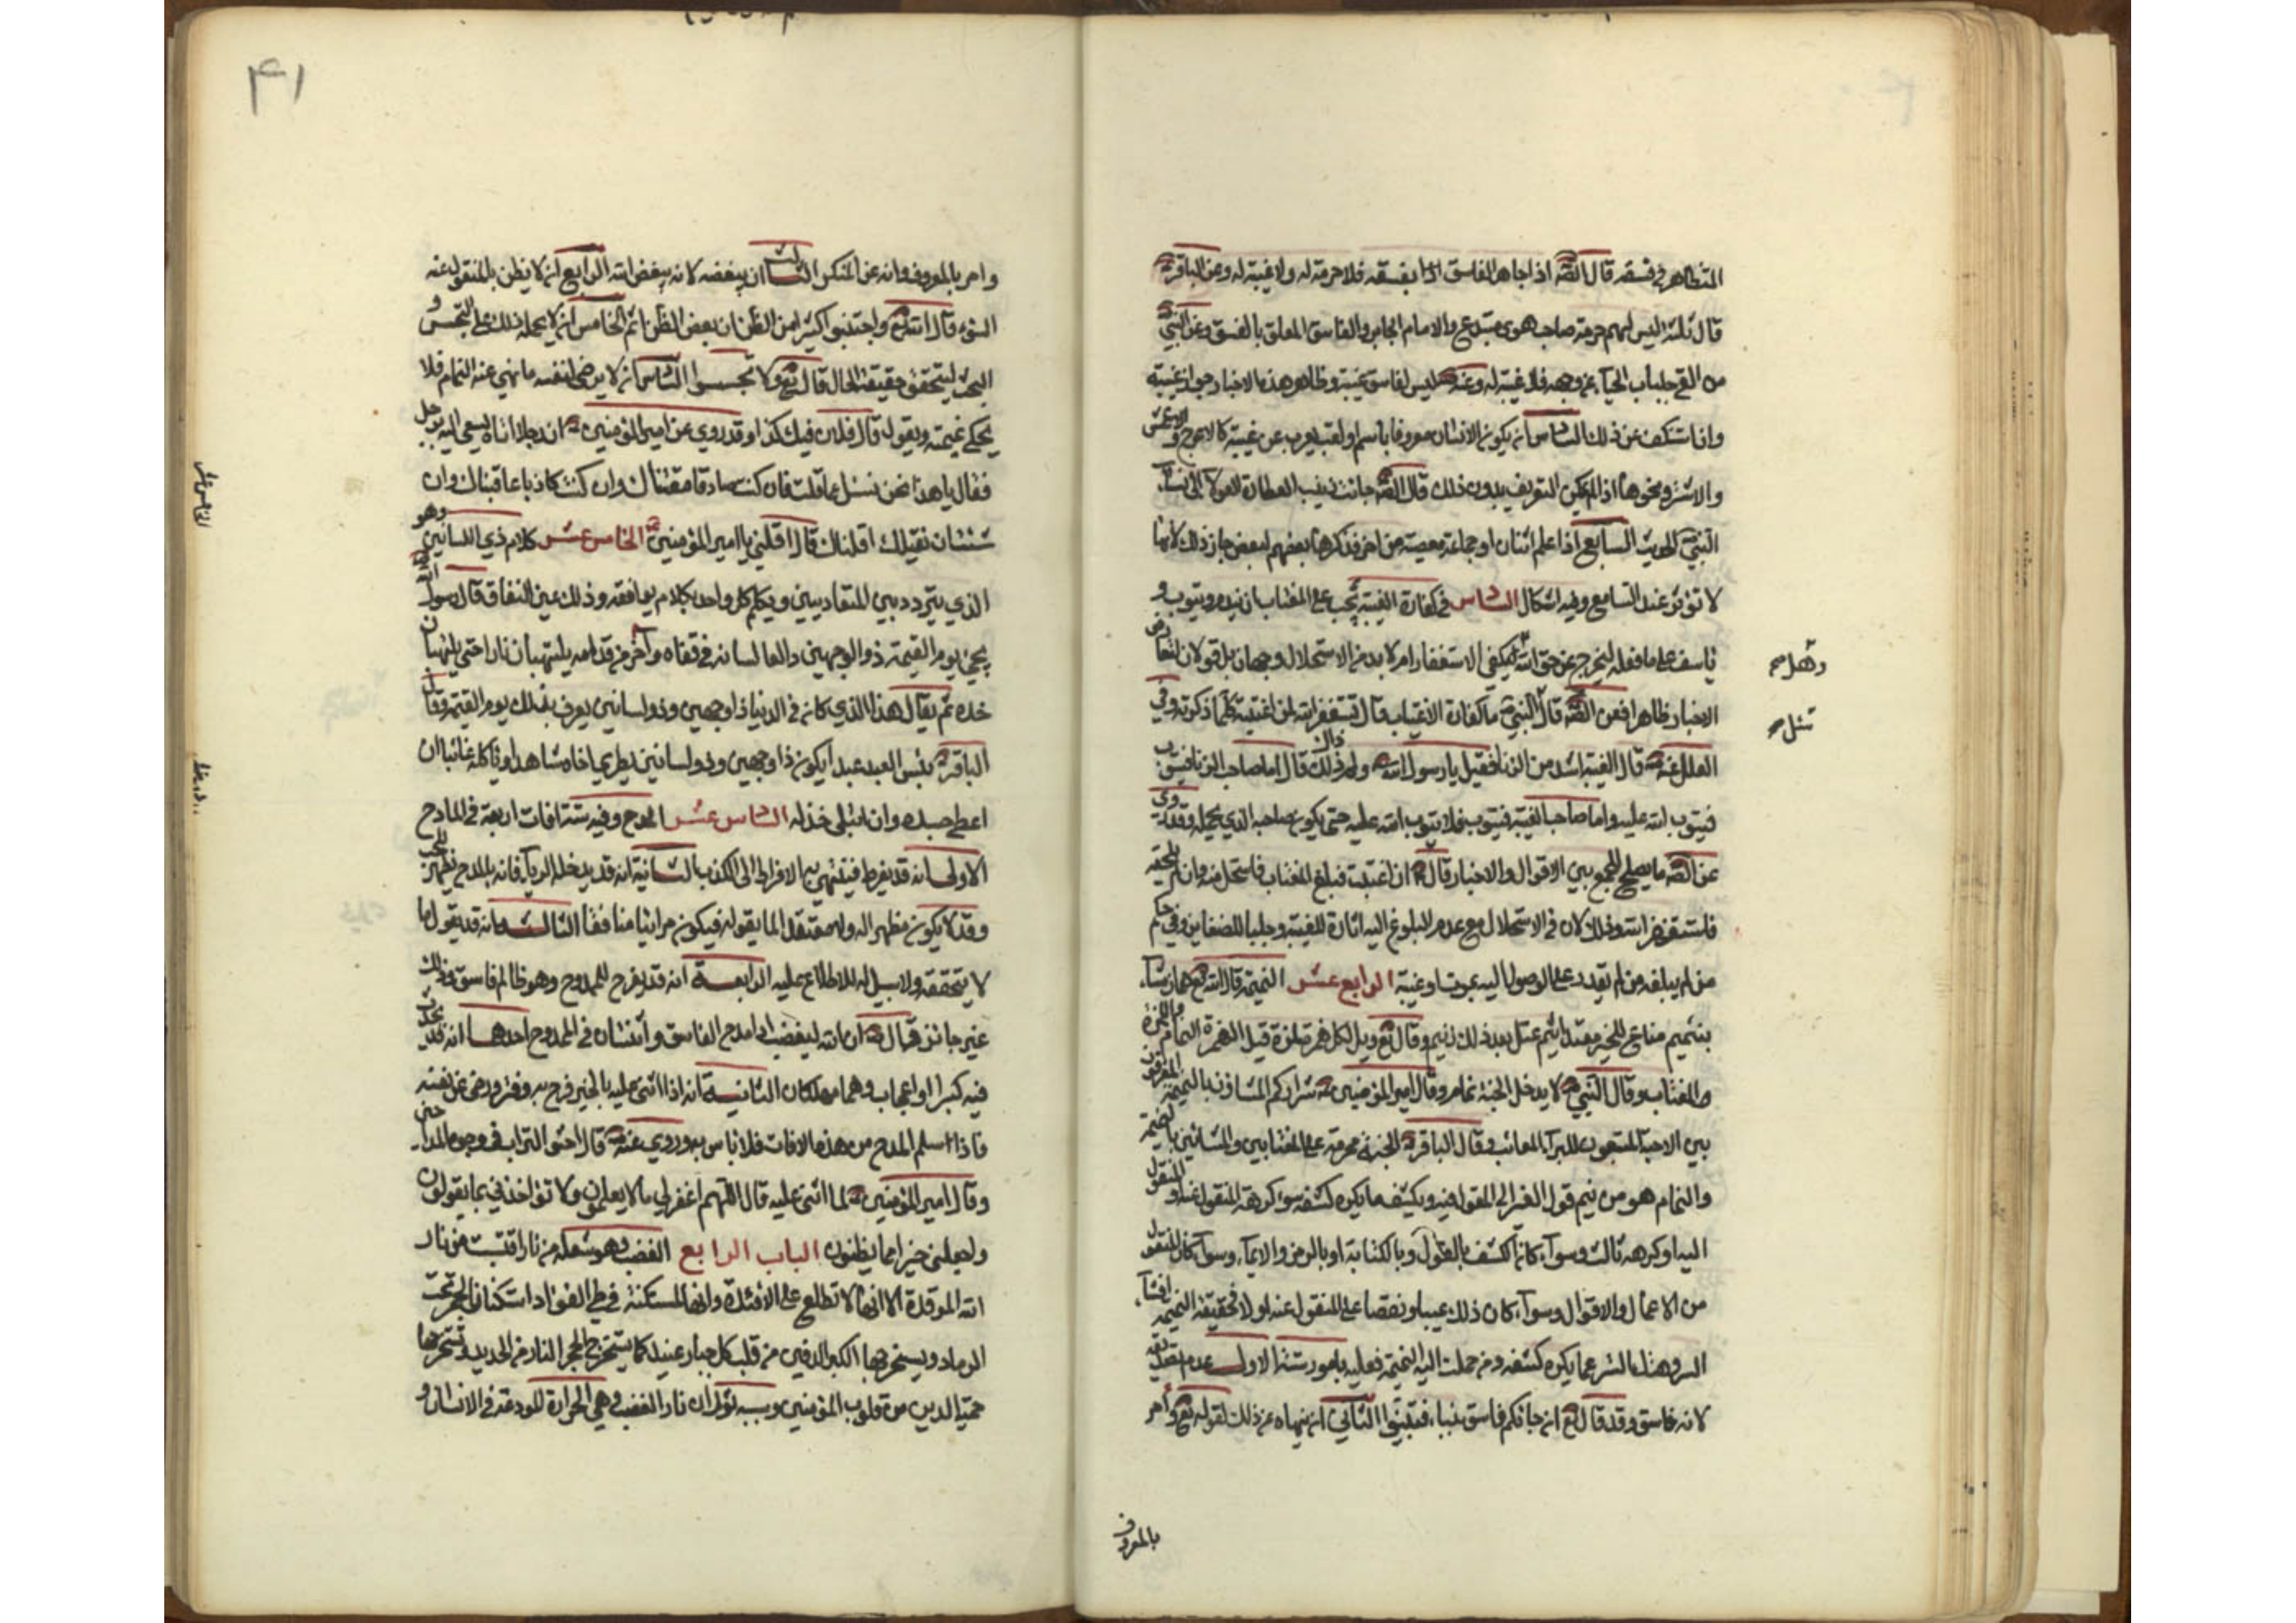 المتظاهر في فسقه قال الصّ اذا جاهر الفاسق بفسقه فلا حرمة له ولا غيبة له وعن الباقر
قال ثلثة ليس لهم حرمة صاحب هوى مبتدع والامام الجاير والفاسق المعلن بالفسق وعن النبي
من القى جلباب الحيآء عن وجهه فلا غيبة له وعنه ليس لفاسق غيبة وظاهر هذه الاخبار جواز غيبته
وان استنكف عن ذلك السادس ان يكون الانسان معروفا باسم او لقب يعرب عن غيبة كالاعرج والاعمش
والاشتر ونحوها اذا لم يمكن التعريف بدون ذلك قال الصّ جائت زينب العطارة الحولاء الى نساء
النبي الحديث السابع اذا علم اثنان او جماعة معصية من اخر فذكرها بعضهم لبعض جاز ذلك لانها
لا تؤثر عند السامع وفيه اشكال السادس في كفارة الغيبة يجب على المغتاب ان يندم ويتوب و
يأسف على ما فعله ليخرج عن حق الله وهل يكفي الاستغفار ام لا بد من الاستحلال وجهان بل قولان لتعارض
الاخبار ظاهرا فعن الصّ قال سئل النبي ما كفارة الاغتياب قال تستغفر الله لمن اغتبته كلما ذكرته وفي
العلل عنه قال الغيبة اشد من الزنا فقيل يا رسول الله ولم ذلك قال اما صاحب الزنا فيتوب
فيتوب الله عليه واما صاحب الغيبة فيتوب فلا يتوب الله عليه حتى يكون صاحبه الذي يحلله وقد روي
عن الصّ ما يصلح للجمع بين الاقوال والاخبار قال ان اغتبت فبلغ المغتاب فاستحل منه وان لم يلحقه
فاستغفر الله وذلك لان في الاستحلال مع عدم البلوغ اليه اثارة للفتنة وجلبا للضغاين وفي حكم
من لم يبلغه من لم يقدر على الوصول اليه بموت او غيبة الرابع عشر النميمة قال الله تع هماز مشاء
بنميم مناع للخير معتد اثيم عتل بعد ذلك زنيم وقال تع ويل لكل همزة لمزة قيل الهمزة النمام واللمزة
المغتاب وقال النبي لا يدخل الجنة نمام وقال امير المؤمنين شراركم المشاؤن بالنميمة المفرقون
بين الاحبة المبتغون للبرآء المعائب وقال الباقر الجنة محرمة على المغتابين والمشائين بالنميمة
والنمام هو من ينم قول الغير الى المقول فيه ويكشف ما يكره كشفه سوا كرهه المنقول عنه او المنقول
اليه او كرهه ثالث وسوآء كان الكشف بالقول او بالكتابة او بالرمز والايمآء وسوآء كان المنقول
من الاعمال والاقوال وسوآء كان ذلك عيبا ونقصا على المنقول عنه او لا فحقيقة النميمة افشآء
السر وهتك الستر عما يكره كشفه ومن حملت اليه النميمة فعليه بامور ستة الاول عدم تصديقه
لانه فاسق وقد قال تع ان جائكم فاسق بنباء فتبينوا الثاني ان ينهاه عن ذلك لقوله تع وأمر
وهل صح
سئل صح
بالمعروف
٤١
وامر بالمعروف وانه عن المنكر الثالث ان يبغضه لانه يبغض الله الرابع ان لا يظن بالمنقول عنه
السوء قال الله تع واجتنبوا كثيرا من الظن ان بعض الظن اثم الخامس ان لا يحمله ذلك على التجسس و
البحث ليتحقق حقيقة الحال قال تع ولا تجسسوا السادس ان لا يرضى لنفسه ما نهي عنه النمام فلا
يحكي نميمته ويقول قال فلان فيك كذا وقد روي عن امير المؤمنين ان رجلا اتاه يسعى اليه برجل
فقال يا هذا نحن نسئل عما قلت فان كنت صادقا مقتناك وان كنت كاذبا عاقبناك وان
شئت ان نقيلك اقلناك قال اقلني يا امير المؤمنين الخامس عشر كلام ذي اللسانين وهو
الذي يتردد بين المتعاديين ويكلم كل واحد بكلام يوافقه وذلك عين النفاق قال رسول الله
يجئ يوم القيمة ذو الوجهين دالعا لسانه في قفاه وآخر من قدامه يلتهبان نارا حتى يلتهبان
خده ثم يقال هذا الذي كان في الدنيا ذا وجهين وذو لسانين يعرف بذلك يوم القيمة وقال
الباقر بئس العبد عبد ايكون ذا وجهين وذو لسانين يطري اخاه شاهدا وياكله غائبا ان
اعطي حسده وان ابتلي خذله السادس عشر المدح وفيه ستة افات اربعة في المادح
الاولى انه قد يفرط فينتهي به الافراط الى الكذب الثانية انه قد يدخله الريآء فانه بالمدح يظهر للحب
وقد لا يكون مظهرا له ولا معتقدا لما يقوله فيكون مرائيا منافقا الثالث انه قد يقول ما
لا يتحققه ولا سبيل له للاطلاع عليه الرابعة انه قد يفرح الممدوح وهو ظالم فاسق وذلك
غير جائز قال ان الله ليغضب اذا مدح الفاسق واثنتان في الممدوح احدها انه قد يحدث
فيه كبرا واعجاب وهما مهلكان الثانية انه اذا اثنى عليه بالخير فرح به وفتر ورضي عن نفسه
فاذا اسلم المدح من هذه الافات فلا باس به وروي عنه قال احثوا التراب في وجوه المداحين
وقال امير المؤمنين لما اثنى عليه قال اللهم اغفر لي ما لا يعلمون ولا تؤاخذني بما يقولون
واجعلني خيرا مما يظنون الباب الرابع الغضب وهو شعلة من نار اقتبست من نار
الله الموقدة الا انها لا تطلع على الافئدة وانها لمستكنة في طي الفؤاد استكنان الجمر تحت
الرماد ويستخرجها الكبر الدفين من قلب كل جبار عنيد كما يستخرج الحجر النار من الحديد وتستخرجها
حمية الدين من قلوب المؤمنين وسببه ثوران نار الغضب وهي الحرارة المودعة في الانسان و